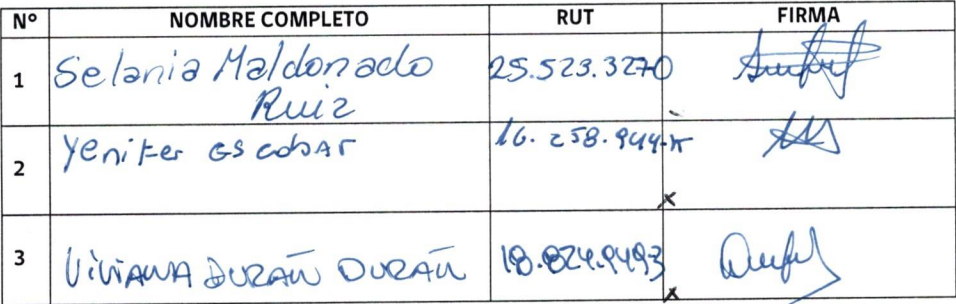 Nº NOMBRE COMPLETO RUT FIRMA
1 Selania Maldonado 25.523.327-0
Ruiz
2 Yenifer Escobar 16.258.944-K
3 Viviana Durán Durán